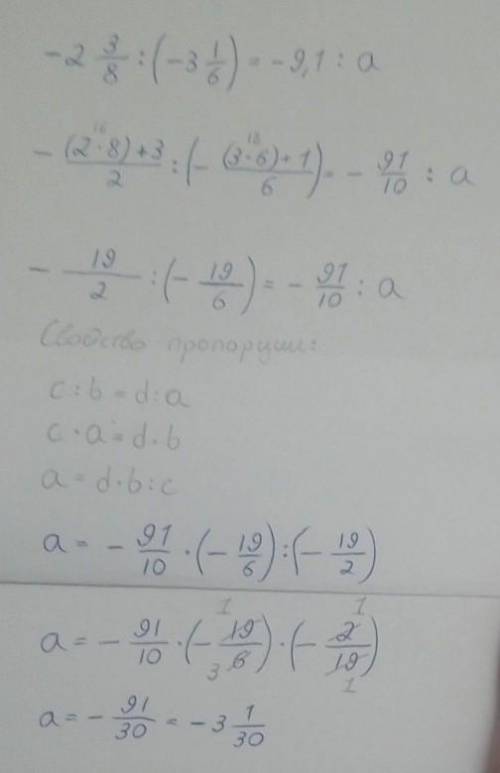 -2 3/8 : (-3 1/6) = -9,1 : a
- ((2·8)+3)/2 : (- ((3·6)+1)/6) = - 91/10 : a
16 18
- 19/2 : (- 19/6) = - 91/10 : a
Свойство пропорции:
c : b = d : a
c · a = d · b
a = d · b : c
a = - 91/10 · (- 19/6) : (- 19/2)
a = - 91/10 · (- 19/6) · (- 2/19)
1 3 1 1
a = - 91/30 = -3 1/30